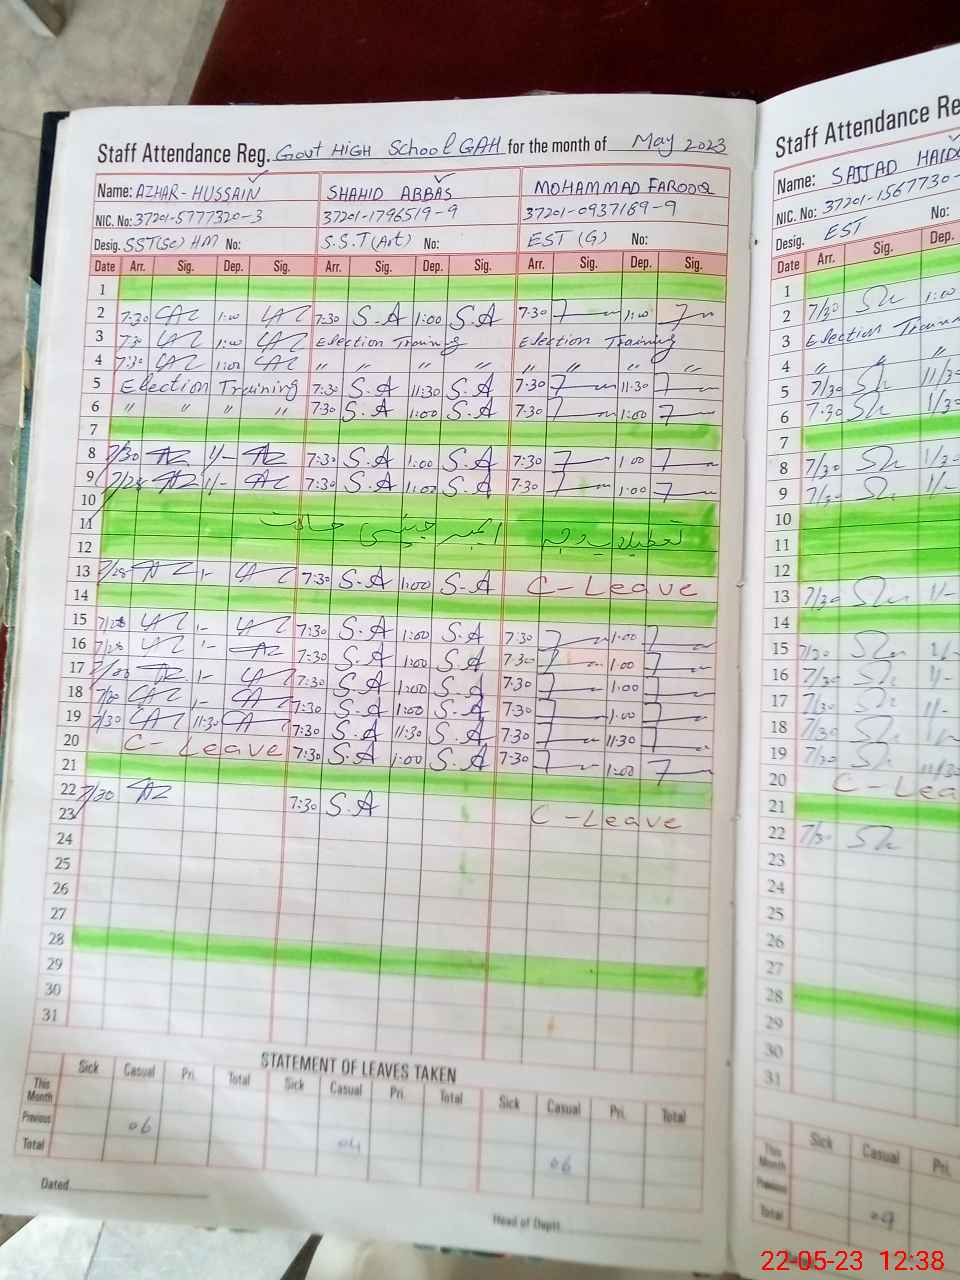 Staff Attendance Reg. Govt HIGH School GAH for the month of May 2023
Name: AZHAR-HUSSAIN SHAHID ABBAS MOHAMMAD FAROOQ
NIC. No: 37201-5777320-3 37201-1796519-9 37201-0937169-9
Desig. SST(Sc) HM No: S.S.T (Art) No: EST (G) No:
Date Arr. Sig. Dep. Sig. Arr. Sig. Dep. Sig. Arr. Sig. Dep. Sig.
1
2 7:30 1:00 7:30 S.A 1:00 S.A 7:30 1:00
3 7:30 1:00 Election Training Election Training
4 7:30 1:00 " " " " " " " "
5 Election Training 7:30 S.A 11:30 S.A 7:30 11:30
6 " " " " 7:30 S.A 1:00 S.A 7:30 1:00
7
8 7/30 1/- 7:30 S.A 1:00 S.A 7:30 1:00
9 7/28 1/- 7:30 S.A 1:00 S.A 7:30 1:00
10
11
12
13 7/28 1- 7:30 S.A 1:00 S.A C-Leave
14
15 7/28 1- 7:30 S.A 1:00 S.A 7:30 1:00
16 7/28 1- 7:30 S.A 1:00 S.A 7:30 1:00
17 1- 7:30 S.A 1:00 S.A 7:30 1:00
18 1- 7:30 S.A 1:00 S.A 7:30 1:00
19 7/30 11:30 7:30 S.A 11:30 S.A 7:30 11:30
20 C-Leave 7:30 S.A 1:00 S.A 7:30 1:00
21
22 7/30 7:30 S.A C-Leave
23
24
25
26
27
28
29
30
31
STATEMENT OF LEAVES TAKEN
Sick Casual Pri. Total Sick Casual Pri. Total Sick Casual Pri. Total
This Month
Previous 06 04 06
Total
Dated
Head of Deptt.
Staff Attendance Re
Name: SAJJAD HAIDE
NIC. No: 37201-1567730-
Desig. EST No:
Date Arr. Sig. Dep.
1
2 7/30 1:00
3 Election Training
4 " " "
5 7/30 11/30
6 7:30 1/30
7
8 7/30 1/30
9 7/30 1/-
10
11
12
13 7/30 1/-
14
15 7/30 1/-
16 7/30 1/-
17 7/30
18 7/30
19 7/30 11/30
20 C-Lea
21
22 7/30
23
24
25
26
27
28
29
30
31
Sick Casual Pri.
This Month
Previous
Total 09
22-05-23 12:38